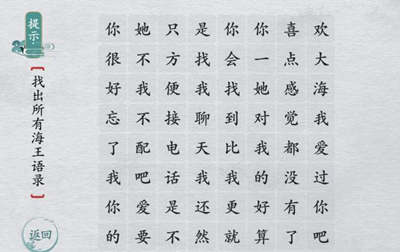 提示
找出所有海王语录
返回
你她只是你你喜欢
很不方找会一点大
好我便我找她感海
忘不接聊到对觉我
了配电天比我都爱
我吧话我我的没过
你爱是还更好有你
的要不然就算了吧